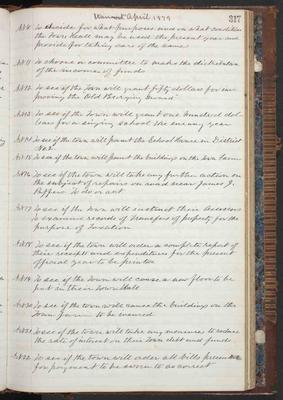 Warrant April 1879
317
Art 10 To decide for what purposes and on what conditions
the Town Hall may be used the present year and
provide for taking care of the same
Art 11 To choose a committee to make the distribution
of the income of funds
Art 12 To see if the Town will grant fifty dollars for im
proving the Old Burying Ground
Art 13 To see if the Town will grant one hundred dol
lars for a singing school the ensuing year
Art 14 To see if the town will paint the School House in District
No
Art 15 To see if the town will paint the buildings on the Town Farm
Art 16 To see if the town will take any further action on
the subject of repairs on road near James J.
to do or act
Art 17 To see if the Town will instruct their Assessors
to examine records of transfers of property for the
purpose of Taxation
Art 18 To see if the town will order a complete report of
their receipts and expenditures for the present
official year to be printed
Art 19 To see if the Town will cause a new floor to be
put in their Town Hall
Art 20 To see if the town will cause the buildings on the
Town farm to be insured
Art 21 To see if the town will take any measures to reduce
the rate of interest on their Town debt and funds
Art 22 To see if the town will order all bills presented
for payment to be sworn to as correct